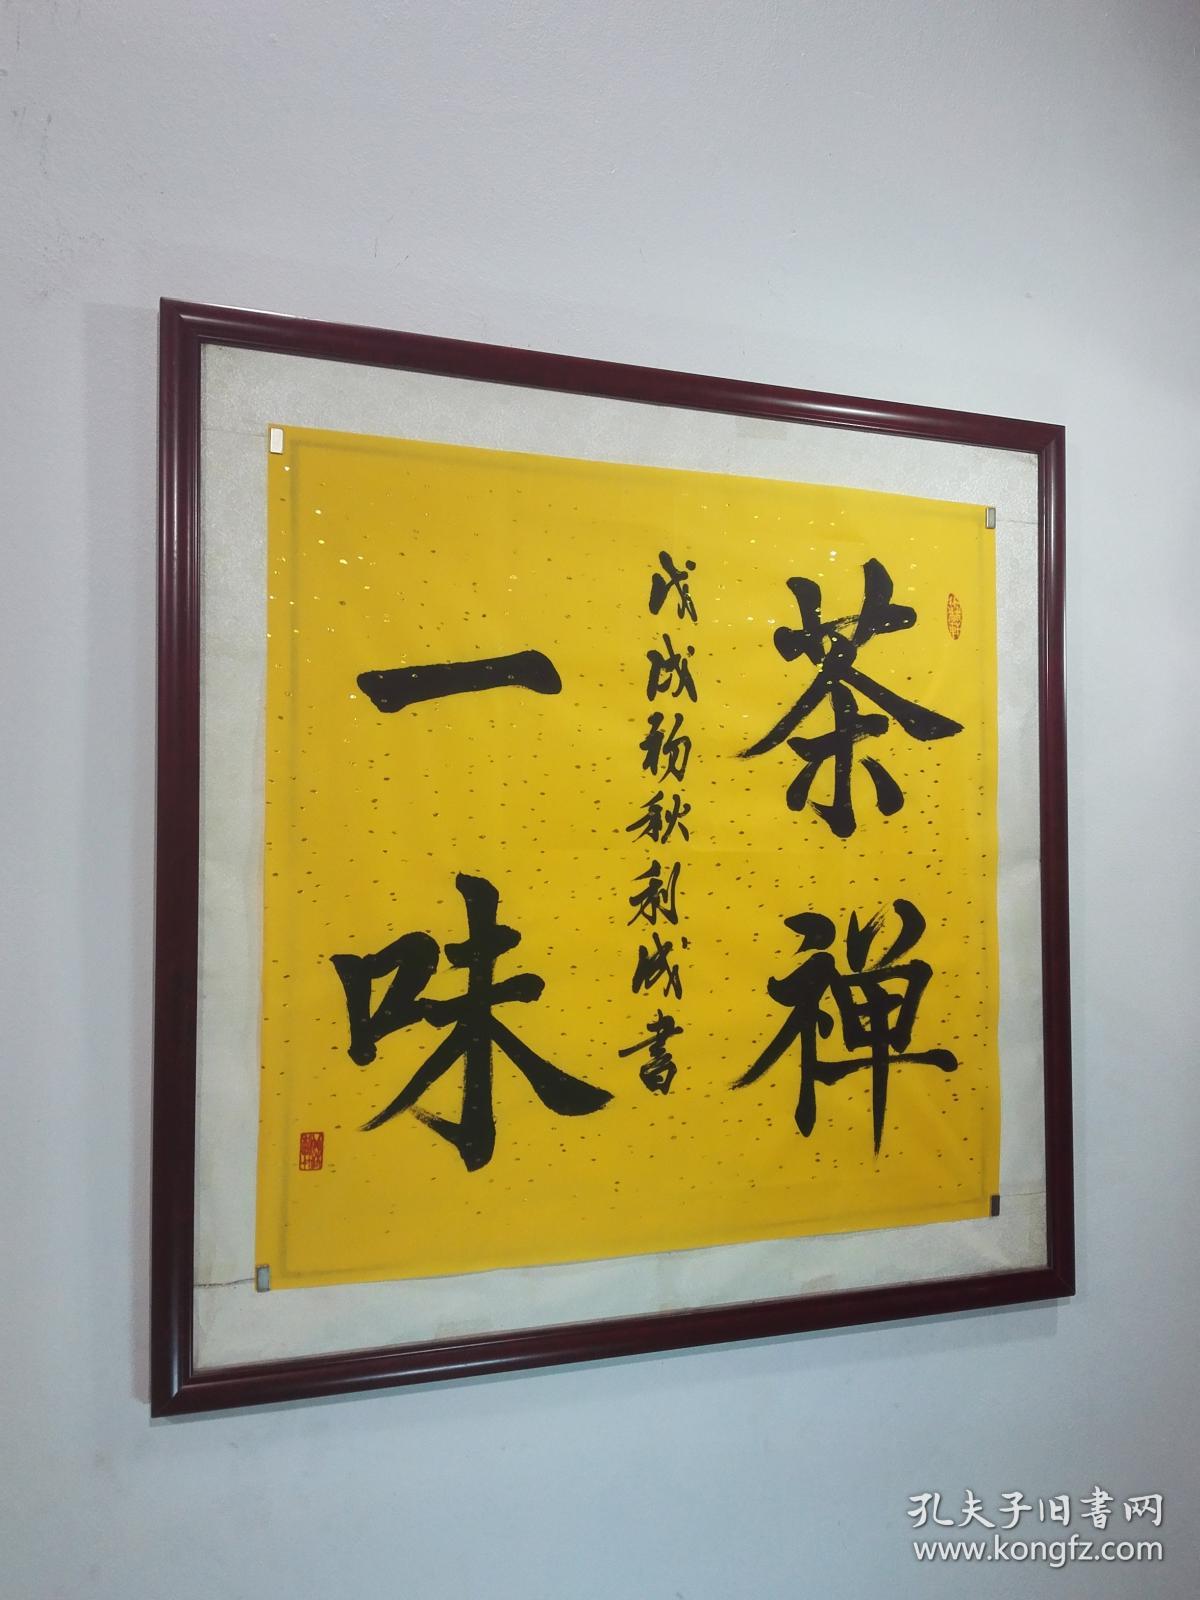 茶禅
戊戌初秋利成書
一味
孔夫子旧書网
www.kongfz.com